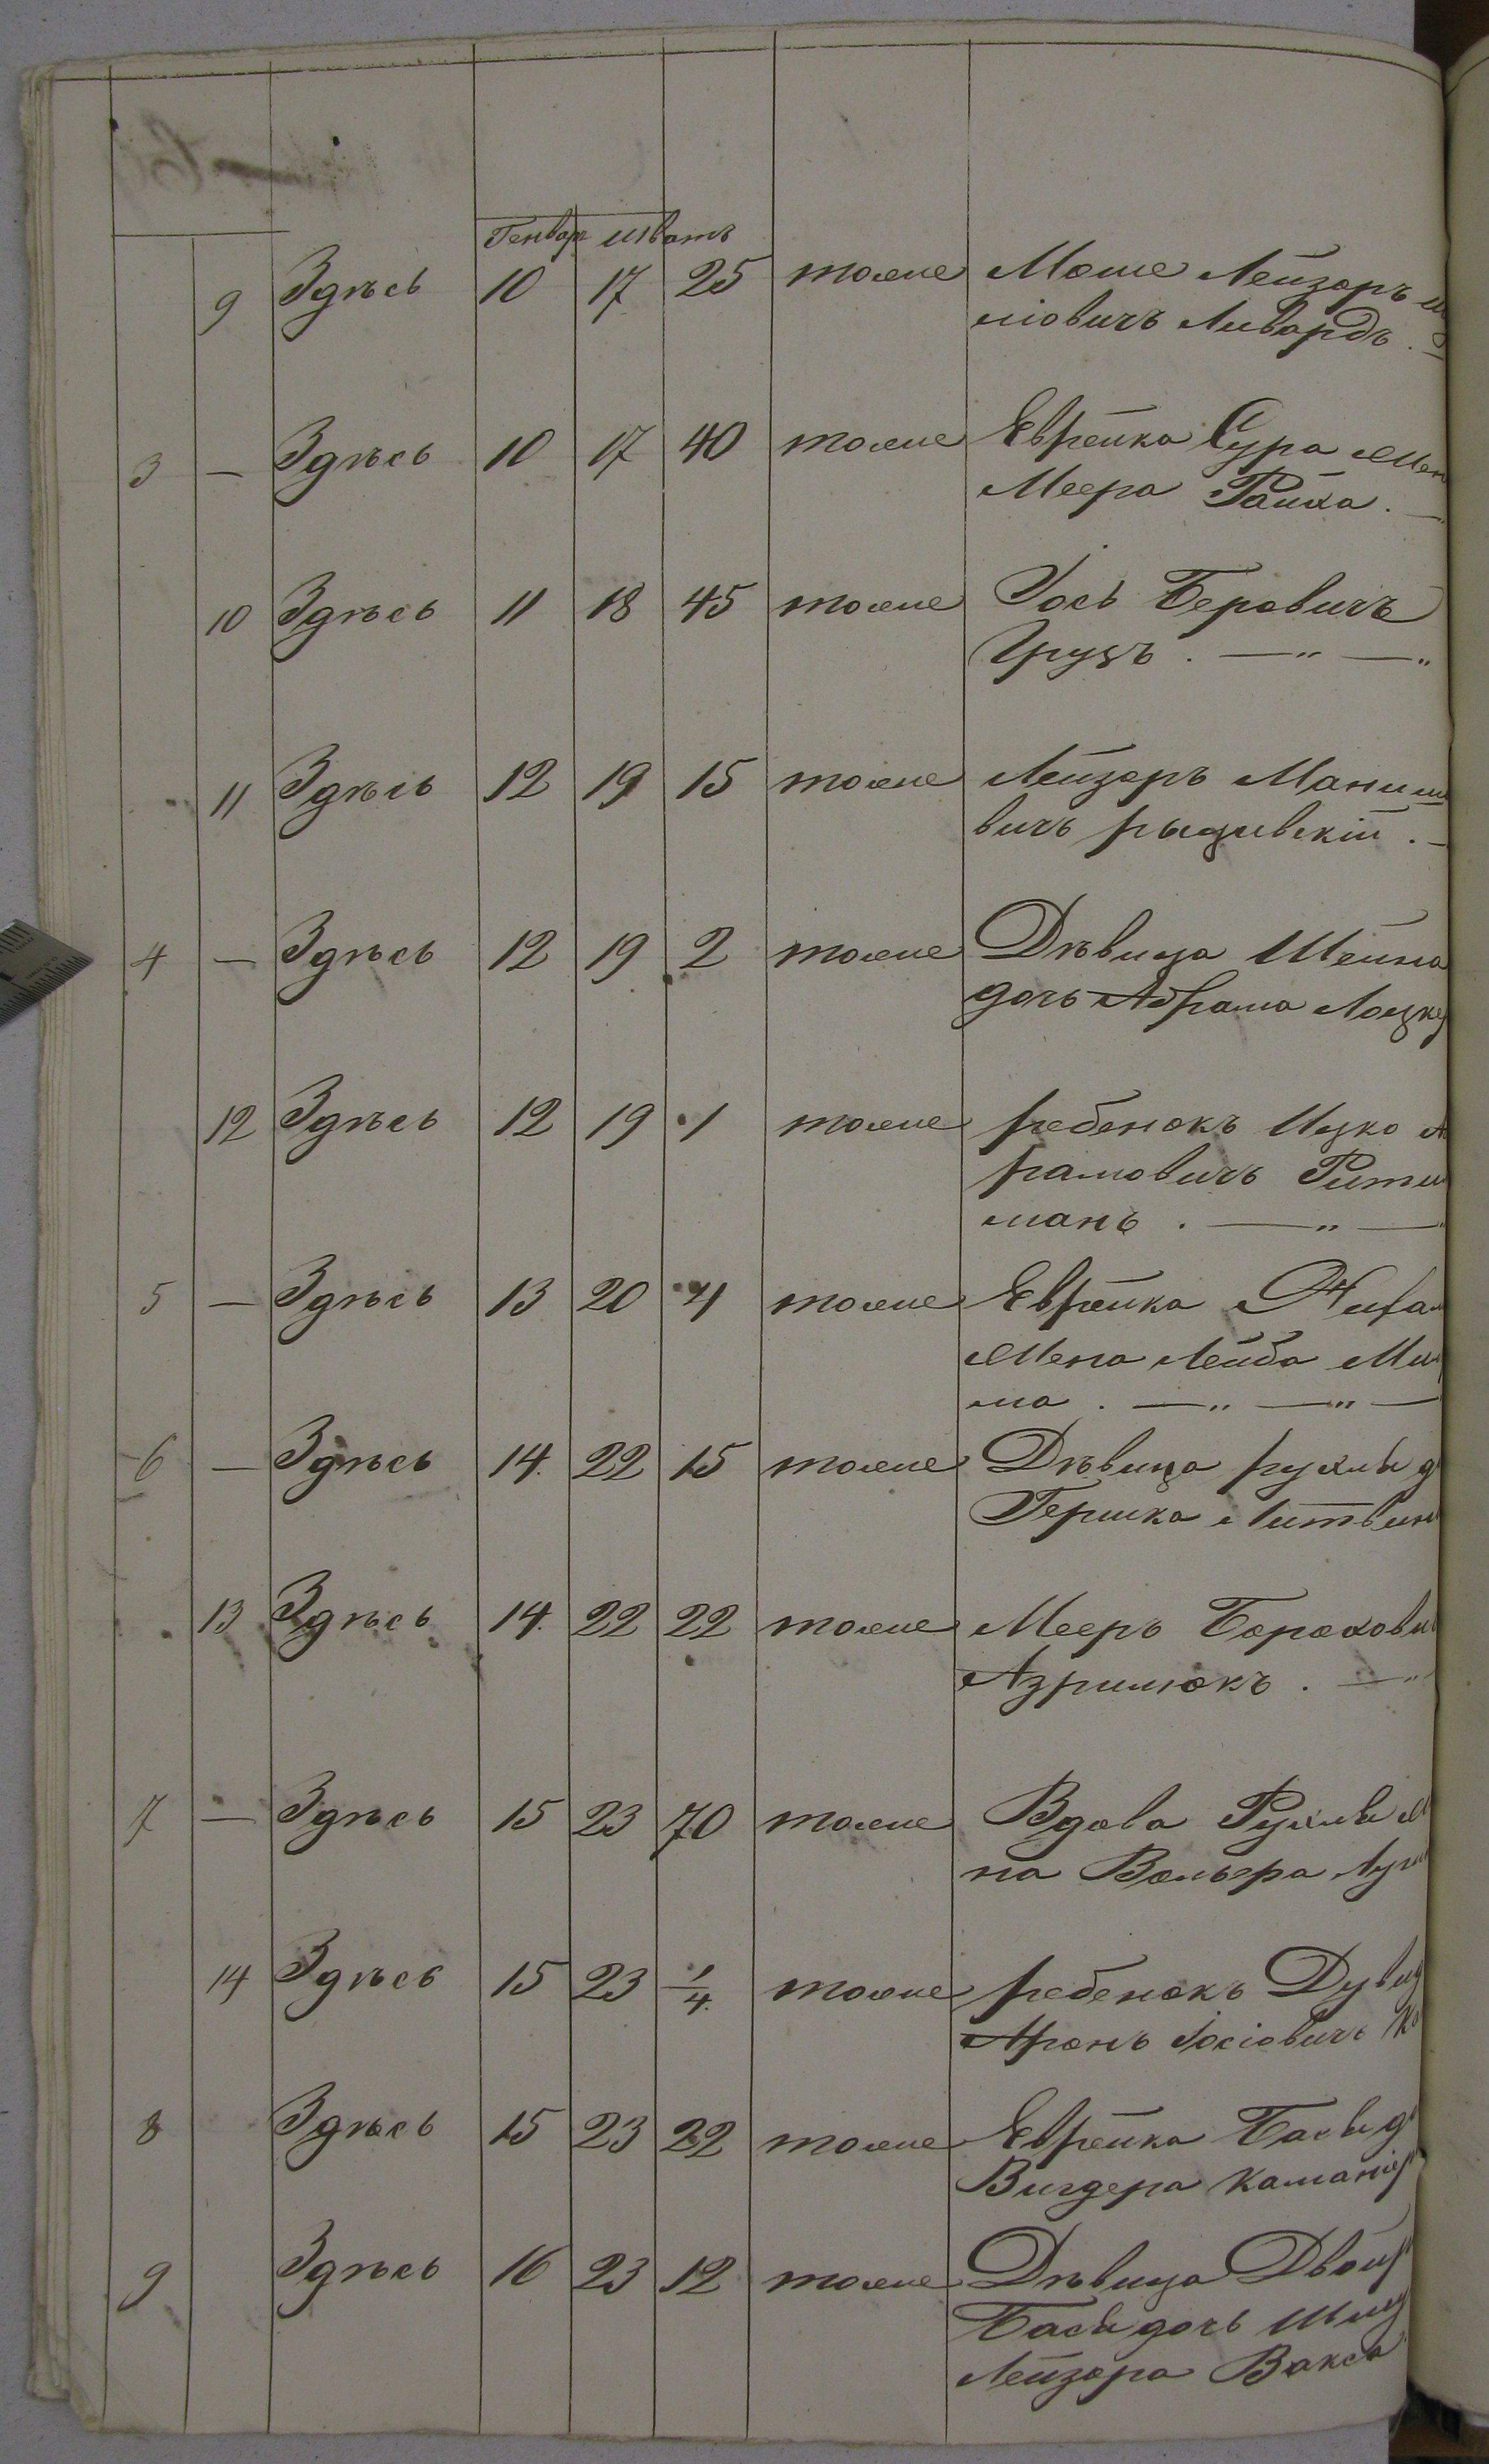 Генвар Шватъ
9 Здѣсь 10 17 25 тоже Моше Лейзоръ
міовичъ Ливардъ . —
3 — Здѣсь 10 17 40 тоже Еврейка Сура жен
Меера Райха . —
10 Здѣсь 11 18 45 тоже Іось Беровичъ
Грузъ . — „ — „
11 Здѣсь 12 19 15 тоже Лейзоръ Маниш
вичъ рыдивскій . —
4 — Здѣсь 12 19 2 тоже Дѣвица Шейна
дочь Абрама Лоцке
12 Здѣсь 12 19 1 тоже ребенокъ Ицко А
рамовичъ Ритш
манъ . — „ —
5 — Здѣсь 13 20 41 тоже Еврейка
жена Лейба
ма . — „ — „ —
6 — Здѣсь 14. 22 15 тоже Дѣвица рухля д
Гершка Литвин
13 Здѣсь 14. 22 22 тоже Мееръ Борохови
Азрилюкъ . — „
7 — Здѣсь 15 23 70 тоже Вдова Рухля ж
на Вольера
14 Здѣсь 15 23 1/4. тоже ребенокъ Дувид
Аронъ Іосіовичъ
8 Здѣсь 15 23 22 тоже Еврейка Бася д
Вигдера
9 Здѣсь 16 23 12 тоже Дѣвица Двойр
Бася дочь
Лейзора Вакса